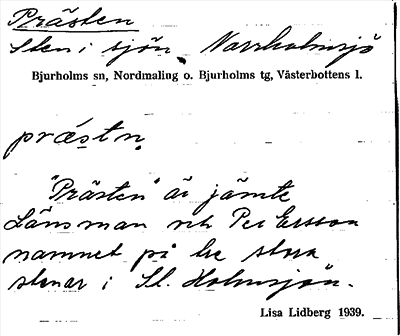 Prästen
Sten i sjön Norrholmsjö
Bjurholms sn, Nordmaling o. Bjurholms tg, Västerbottens l.
præstn.
"Prästen" är jämte
Länsman och Per Ersson
namnet på tre stora
stenar i St. Holmsjön.
Lisa Lidberg 1939.